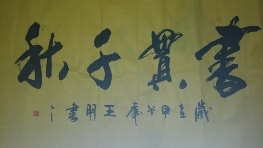 書貫千秋
歲在甲午年王明書